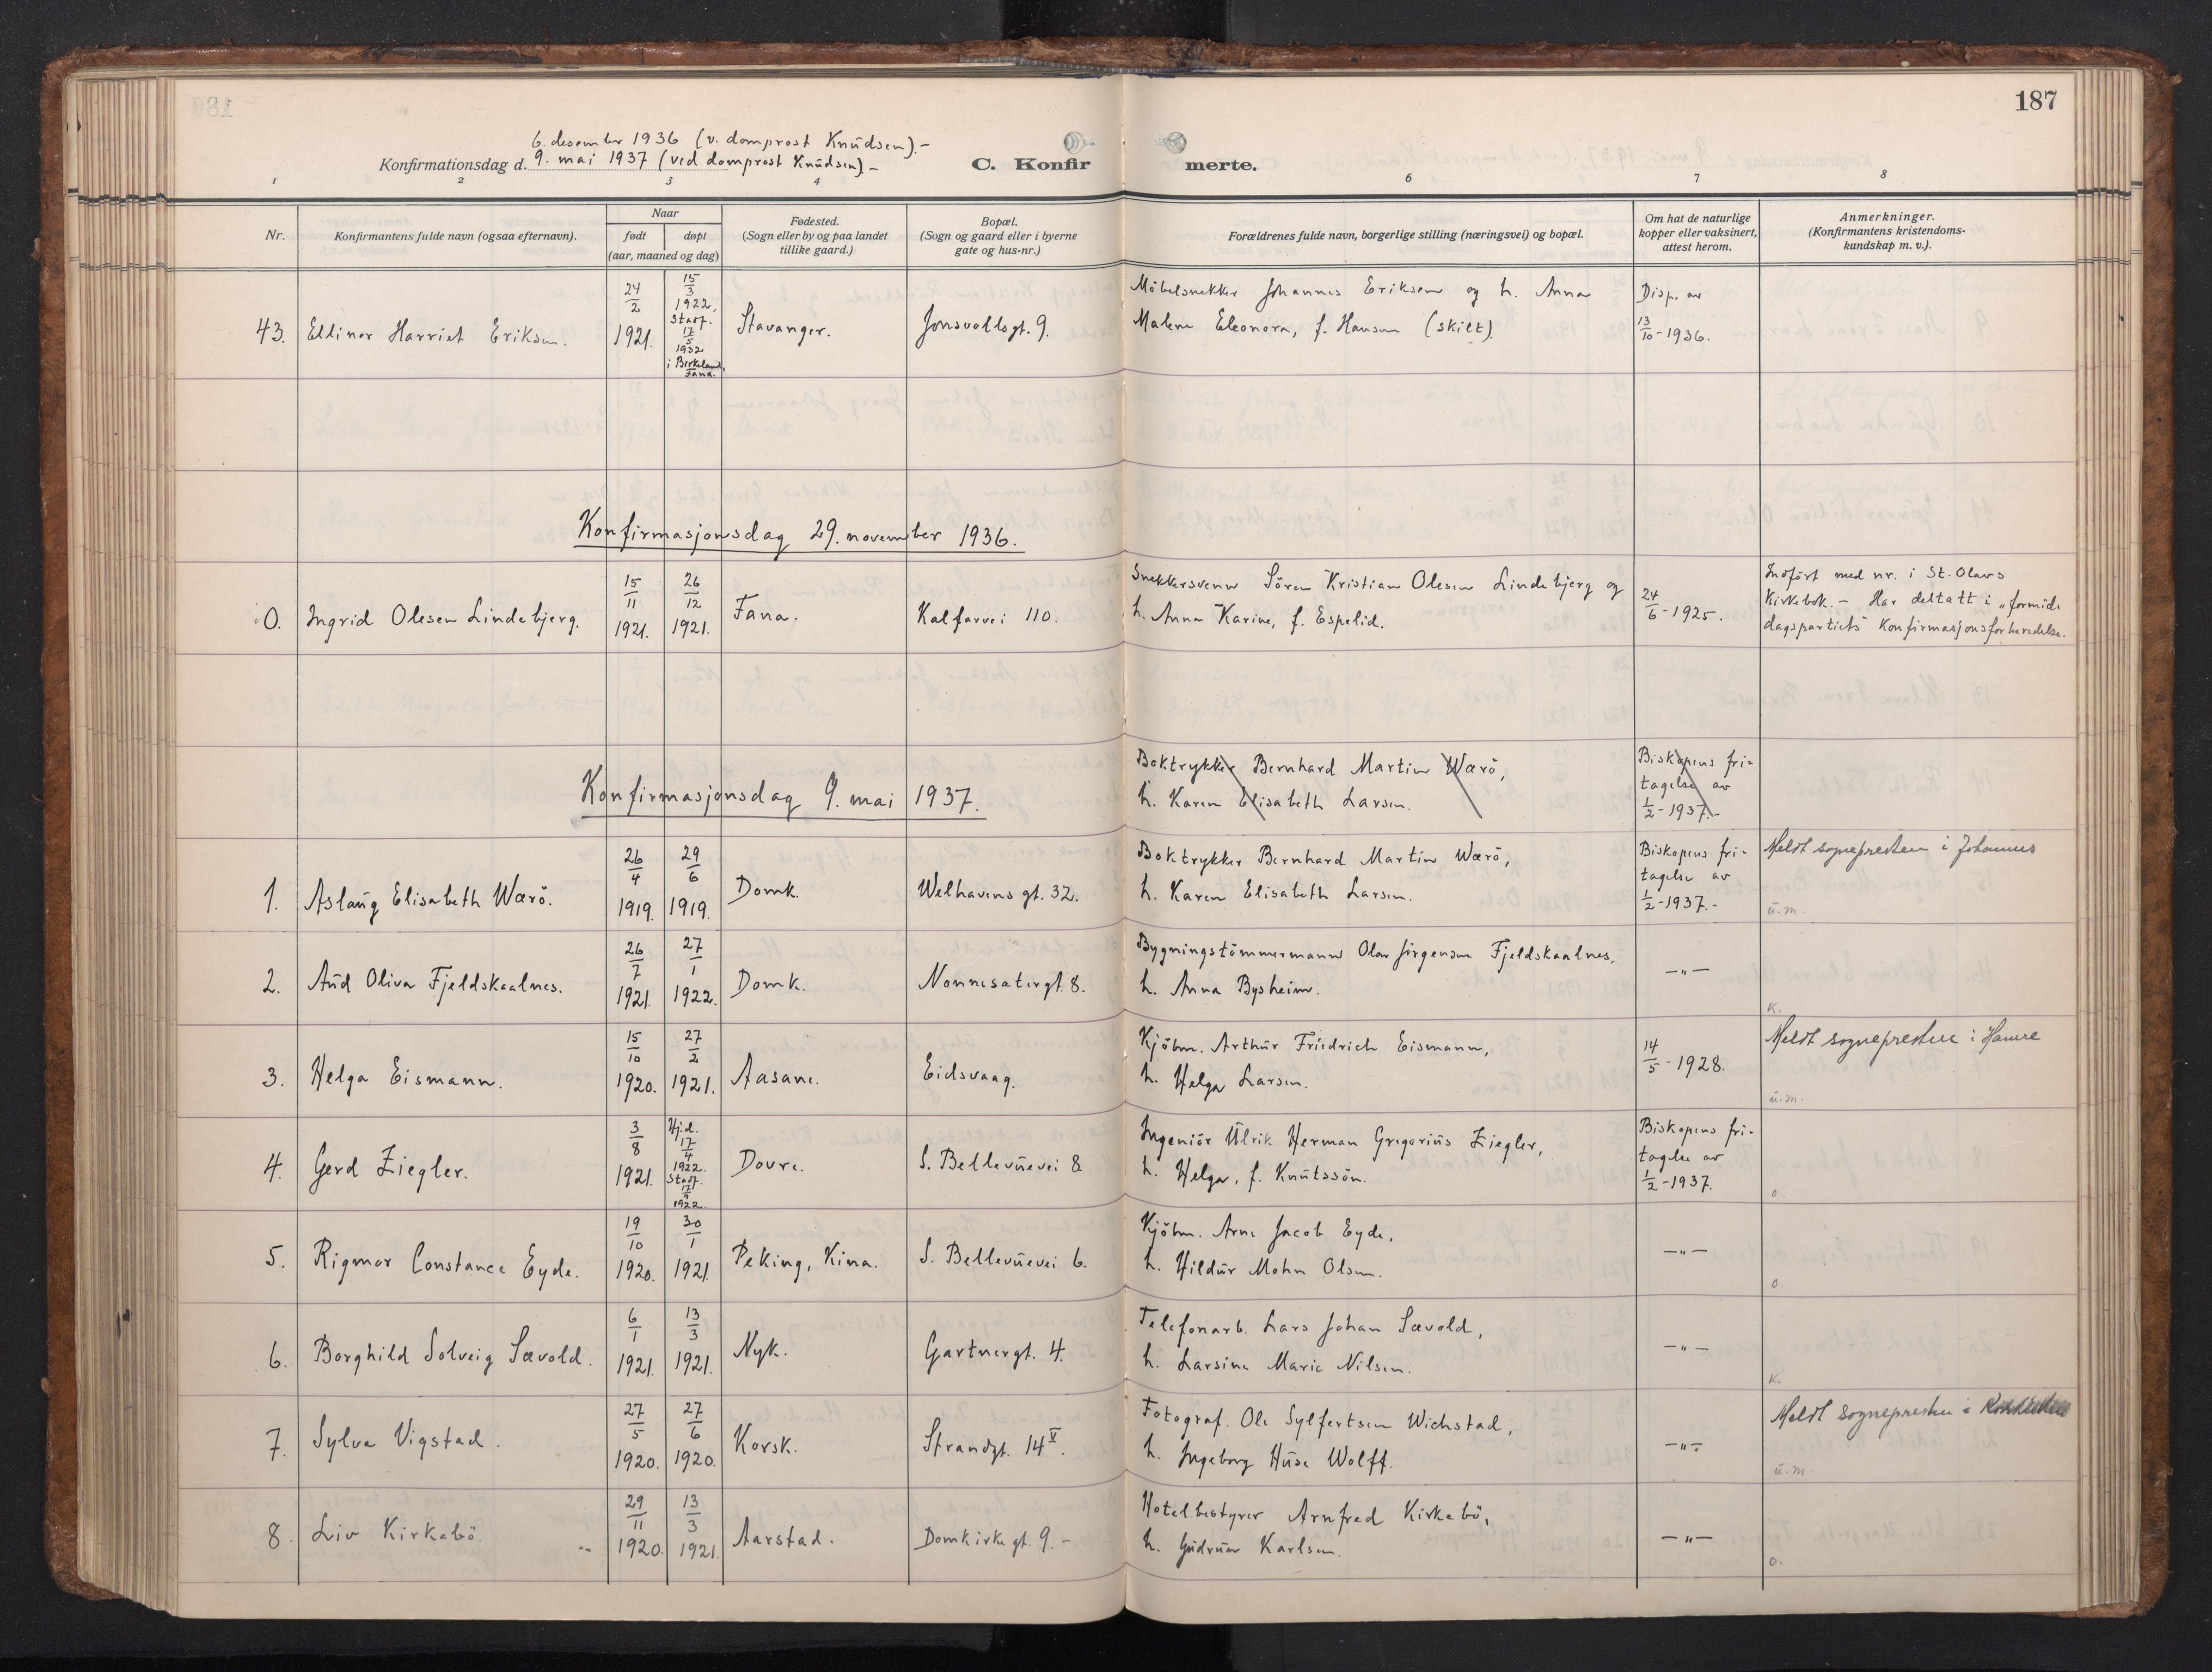 187
6. desember 1936 (v. domprost Knudsen).-
Konfirmationsdag d. 9. mai 1937 (ved domprost Knudsen).-
C. Konfir merte.
1 2 3 4 6 7 8
Nr.
Konfirmantens fulde navn (ogsaa efternavn).
Naar
født døpt
(aar, maaned og dag)
Fødested.
(Sogn eller by og paa landet
tillike gaard.)
Bopæl.
(Sogn og gaard eller i byerne
gate og hus-nr.)
Forældrenes fulde navn, borgerlige stilling (næringsvei) og bopæl.
Om hat de naturlige
kopper eller vaksinert,
attest herom.
Anmerkninger.
(Konfirmantens kristendoms-
kundskap m. v.).
43. Ellinor Harriet Eriksen.
24/2 1921.
15/3 1922,
Stadf.
17/5 1932
i Birkeland,
Fana.
Stavanger.
Jonsvollsgt. 9.
Möbelsnekker Johannes Eriksen og h. Anna
Malene Eleonora, f. Hansen (skilt).
Disp. av
13/10-1936.
Konfirmasjonsdag 29. november 1936.
0. Ingrid Olesen Lindebjerg.
15/11 1921.
26/12 1921.
Fana.
Kalfarvei 110.
Snekkersvenn Sören Kristian Olesen Lindebjerg og
h. Anna Karine, f. Espelid.
24/6-1925.
Indfört med nr. i St. Olavs
Kirkebok. - Har deltatt i „formid-
dagspartiets" Konfirmasjonsforberedelse.
Konfirmasjonsdag 9. mai 1937.
Boktrykker Bernhard Martin Wærö,
h. Karen Elisabeth Larsen.
Biskopens fri-
tagelse av
1/2-1937.-
1. Aslaug Elisabeth Wærö.
26/4 1919.
29/6 1919.
Domk.
Welhavens gt. 32.
Boktrykker Bernhard Martin Wærö,
h. Karen Elisabeth Larsen.
Biskopens fri-
tagelse av
1/2-1937.-
Meldt sognepresten i Johannes
u.m.
2. Aud Oliva Fjeldskaalnes.
26/7 1921.
27/1 1922.
Domk.
Nonnesætergt. 8.
Bygningstömmermann Olav Jörgensen Fjeldskaalnes,
h. Anna Bysheim.
—"—
K.
3. Helga Eismann.
15/10 1920.
27/2 1921.
Aasane.
Eidsvaag.
Kjöbm. Arthur Friedrich Eismann,
h. Helga Larsen.
14/5-1928.
Meldt sognepresten i Hamre
u.m.
4. Gerd Ziegler.
3/8 1921.
Hj.d.
17/4 1922.
Stadf.
1922.
Dovre.
S. Bellevuevei 8
Ingeniör Ulrik Herman Gregorius Ziegler,
h. Helga, f. Knutssön.
Biskopens fri-
tagelse av
1/2-1937.
o.
5. Rigmor Constance Eyde.
19/10 1920.
30/1 1921.
Peking, Kina.
S. Bellevuevei 6.
Kjöbm. Arne Jacob Eyde,
h. Hildur Mohn Olsen.
—"—
o.
6. Borghild Solveig Sævold.
6/1 1921.
13/3 1921.
Nyk.
Gartnergt. 4.
Telefonarb. Lars Johan Sævold,
h. Larsine Marie Nilsen.
—"—
K.
7. Sylva Vigstad.
27/5 1920.
27/6 1920.
Korsk.
Strandgt. 14 V.
Fotograf. Ole Sylfertsen Wichstad,
h. Ingeborg Huse Wolff.
—"—
Meldt sognepresten i
u.m.
8. Liv Kirkebö.
29/11 1920.
13/3 1921.
Aarstad.
Domkirkegt. 9.-
Hotelbestyrer Arnfred Kirkebö,
h. Gudrun Karlsen.
—"—
o.